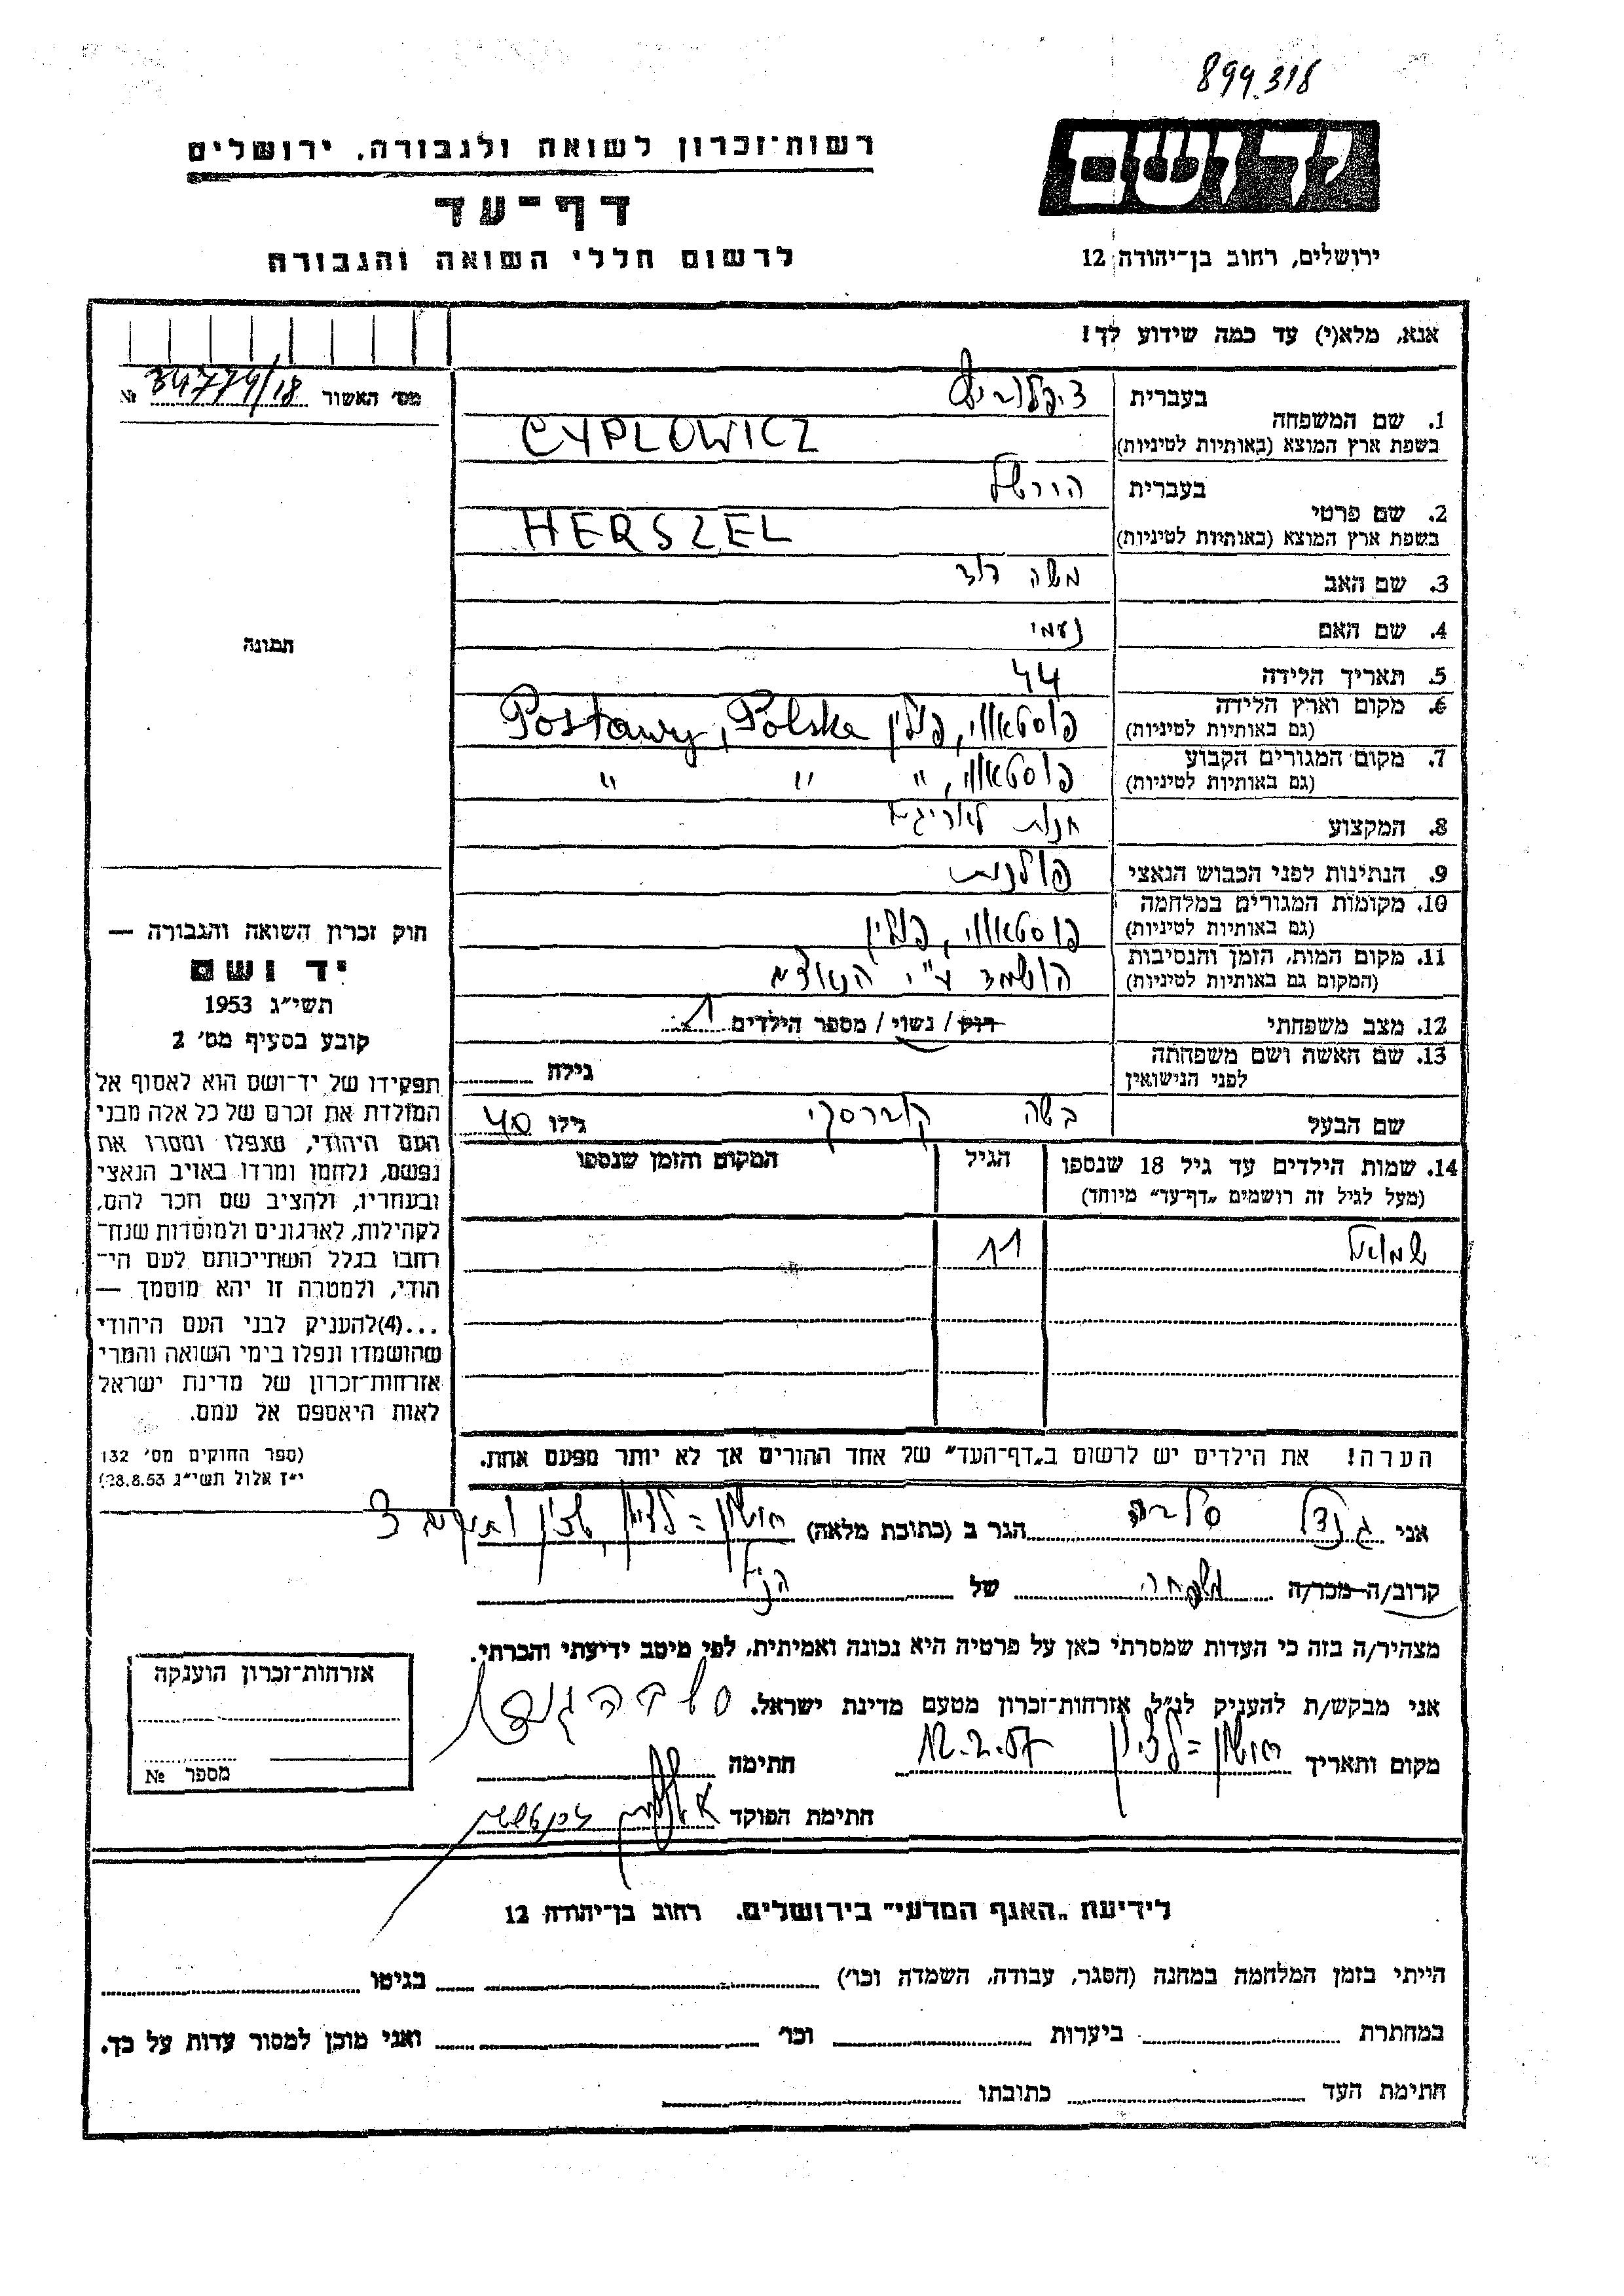 899.318
רשות-זכרון לשואה ולגבורה. ירושלים
דף-עד
לרשום חללי השואה והגבורה
ידושם
ירושלים, רחוב בן-יהודה 12
אנא, מלא(י) עד כמה שידוע לך!
מס' האשור 34774/18 №
1. שם המשפחה
בעברית
בשפת ארץ המוצא (באותיות לטיניות) CYPLOWICZ
2. שם פרטי
בעברית הירשל
בשפת ארץ המוצא (באותיות לטיניות) HERSZEL
3. שם האב משה דוד
4. שם האם נעמי
5. תאריך הלידה 44
6. מקום וארץ הלידה פוסטאווי, פולין Postawy, Polska
(גם באותיות לטיניות)
7. מקום המגורים הקבוע פוסטאווי, " " "
(גם באותיות לטיניות)
8. המקצוע חנות לאריגים
9. הנתינות לפני הכבוש הנאצי פולנית
10. מקומות המגורים במלחמה פוסטאווי, פולין
(גם באותיות לטיניות)
11. מקום המות, הזמן והנסיבות הושמד ע"י הנאצים
(המקום גם באותיות לטיניות)
12. מצב משפחתי רוק / נשוי / מספר הילדים 1
13. שם האשה ושם משפחתה
לפני הנישואין גילה
שם הבעל בשה גילו 40
14. שמות הילדים עד גיל 18 שנספו הגיל המקום והזמן שנספו
(מעל לגיל זה רושמים "דף-עד" מיוחד)
שמואל 11
הערה! את הילדים יש לרשום ב"דף-העד" של אחד ההורים אך לא יותר מפעם אחת.
תמונה
חוק זכרון השואה והגבורה —
יד ושם
תשי"ג 1953
קובע בסעיף מס' 2
תפקידו של יד-ושם הוא לאסוף אל
המולדת את זכרם של כל אלה מבני
העם היהודי, שנפלו ומסרו את
נפשם, נלחמו ומרדו באויב הנאצי
ובעוזריו, ולהציב שם וזכר להם,
לקהילות, לארגונים ולמוסדות שנח-
רבו בגלל השתייכותם לעם הי-
הודי, ולמטרה זו יהא מוסמך —
...(4)להעניק לבני העם היהודי
שהושמדו ונפלו בימי השואה והמרי
אזרחות-זכרון של מדינת ישראל
לאות היאספם אל עמם.
(ספר החוקים מס' 132
י"ז אלול תשי"ג 28.8.53)
אני גנדל הגר ב (כתובת מלאה) ראשון=לציון 3
קרוב/ה-מכר/ה משפחה של הנ"ל
מצהיר/ה בזה כי העדות שמסרתי כאן על פרטיה היא נכונה ואמיתית, לפי מיטב ידיעתי והכרתי.
אני מבקש/ת להעניק לנ"ל אזרחות-זכרון מטעם מדינת ישראל.
מקום ותאריך ראשון=לציון 12.2.57 חתימה
חתימת הפוקד
אזרחות-זכרון הוענקה
מספר №
לידיעת "האגף המדעי" בירושלים. רחוב בן-יהודה 12
הייתי בזמן המלחמה במחנה (הסגר, עבודה, השמדה וכו') בגיטו
במחתרת ביערות וכו' ואני מוכן למסור עדות על כך.
חתימת העד כתובתו